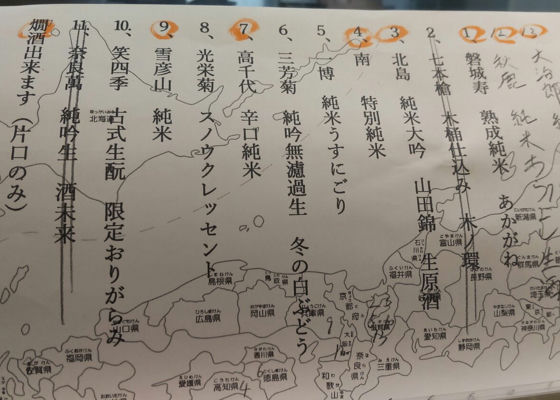 大治郎
秋鹿 純米
1、磐城寿 熟成純米 あかがね
2、七本槍 木桶仕込み 木ノ環
3、北島 純米大吟 山田錦 生原酒
4、南 特別純米
5、一博 純米うすにごり
6、三芳菊 純吟無濾過生 冬の白ぶどう
7、高千代 辛口純米
8、光栄菊 スノウクレッセント
9、雪彦山 純米
10、笑四季 古式生酛 限定おりがらみ
11、奈良萬 純吟生 酒未来
燗酒出来ます（片口のみ）
北海道
新潟県
富山県
石川県
福井県
長野県
群馬県
埼玉
山梨県
神奈川県
静岡県
愛知県
三重県
奈良県
和歌山
大阪
京都府
岡山県
島根県
広島県
山口県
香川県
徳島県
愛媛県
高知県
福岡県
佐賀県